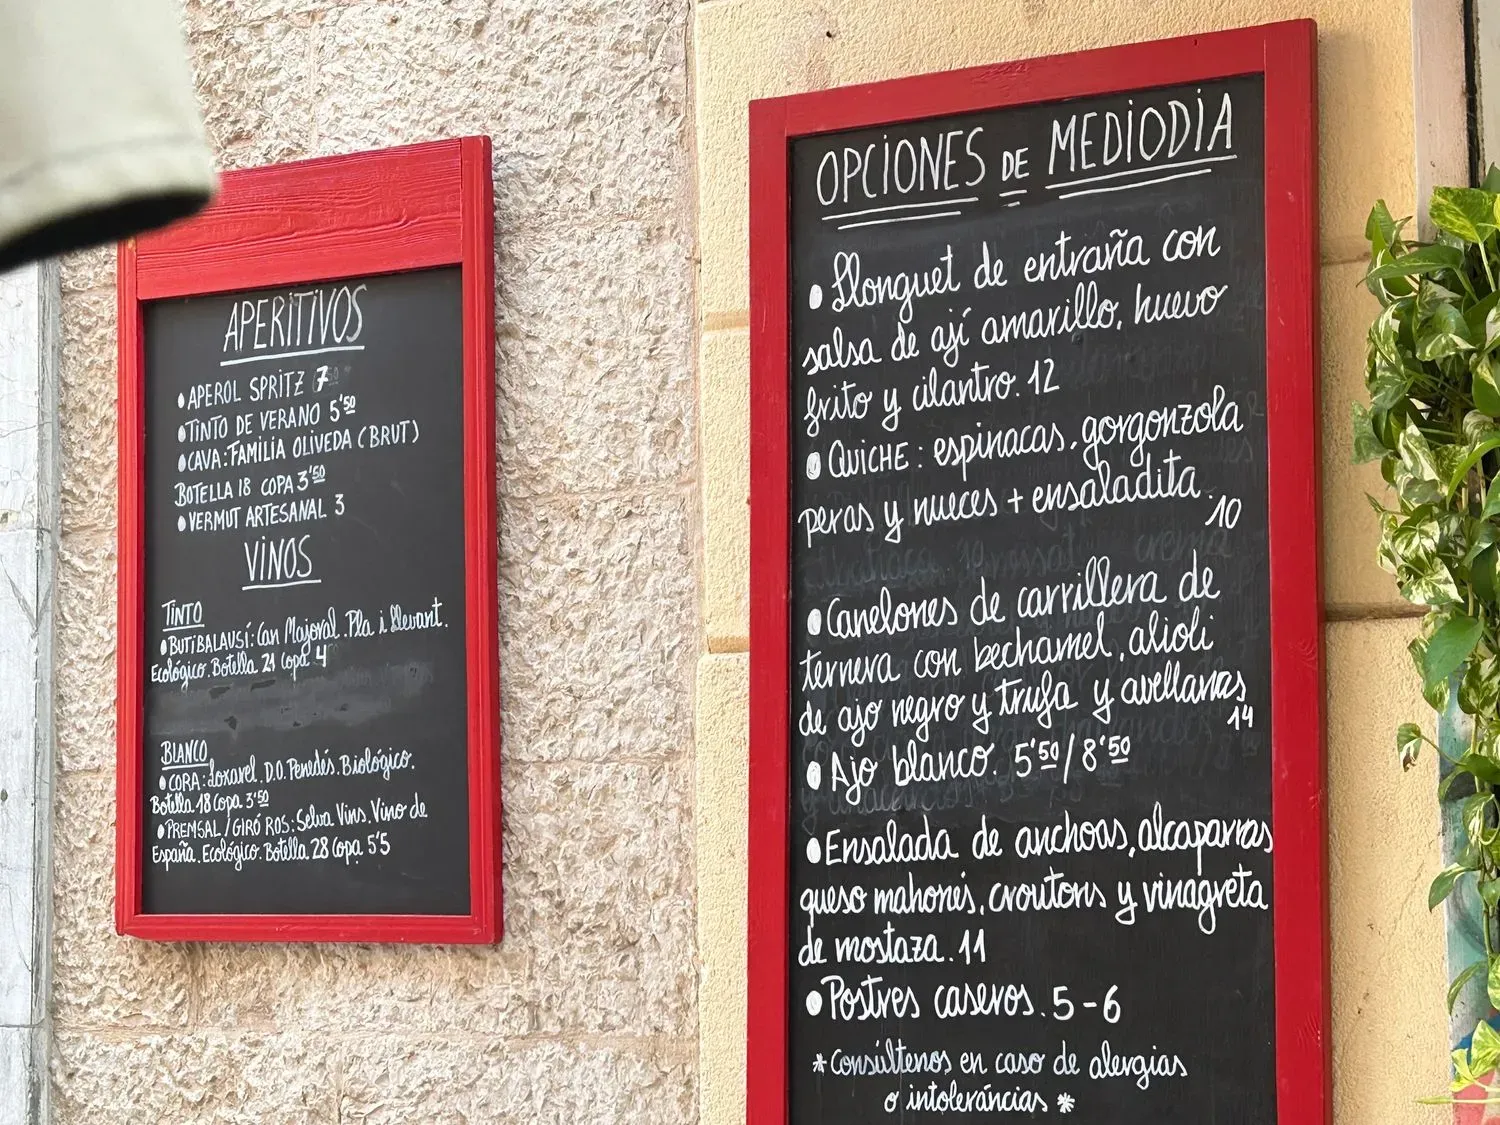 APERITIVOS
APEROL SPRITZ 7
TINTO DE VERANO 5'50
CAVA: FAMILIA OLIVEDA (BRUT)
BOTELLA 18 COPA 3'50
VERMUT ARTESANAL 3
VINOS
TINTO
BUTIBALAUSÍ: Can Majoral. Pla i Llevant.
Ecológico. Botella 21 Copa 4
BLANCO
CORA: Loxarel. D.O. Penedés. Biológico.
Botella 18 Copa 3'50
PREMSAL / GIRÓ ROS: Selva Vins. Vino de
España. Ecológico. Botella 28 Copa 5'5
OPCIONES DE MEDIODIA
Llonguet de entraña con
salsa de ají amarillo, huevo
frito y cilantro. 12
QUICHE: espinacas, gorgonzola
peras y nueces + ensaladita.
10
Canelones de carrillera de
ternera con bechamel, alioli
de ajo negro y trufa y avellanas
14
Ajo blanco. 5'50 / 8'50
Ensalada de anchoas, alcaparras
queso mahonés, croutons y vinagreta
de mostaza. 11
Postres caseros. 5 - 6
*Consúltenos en caso de alergias
o intoleráncias *